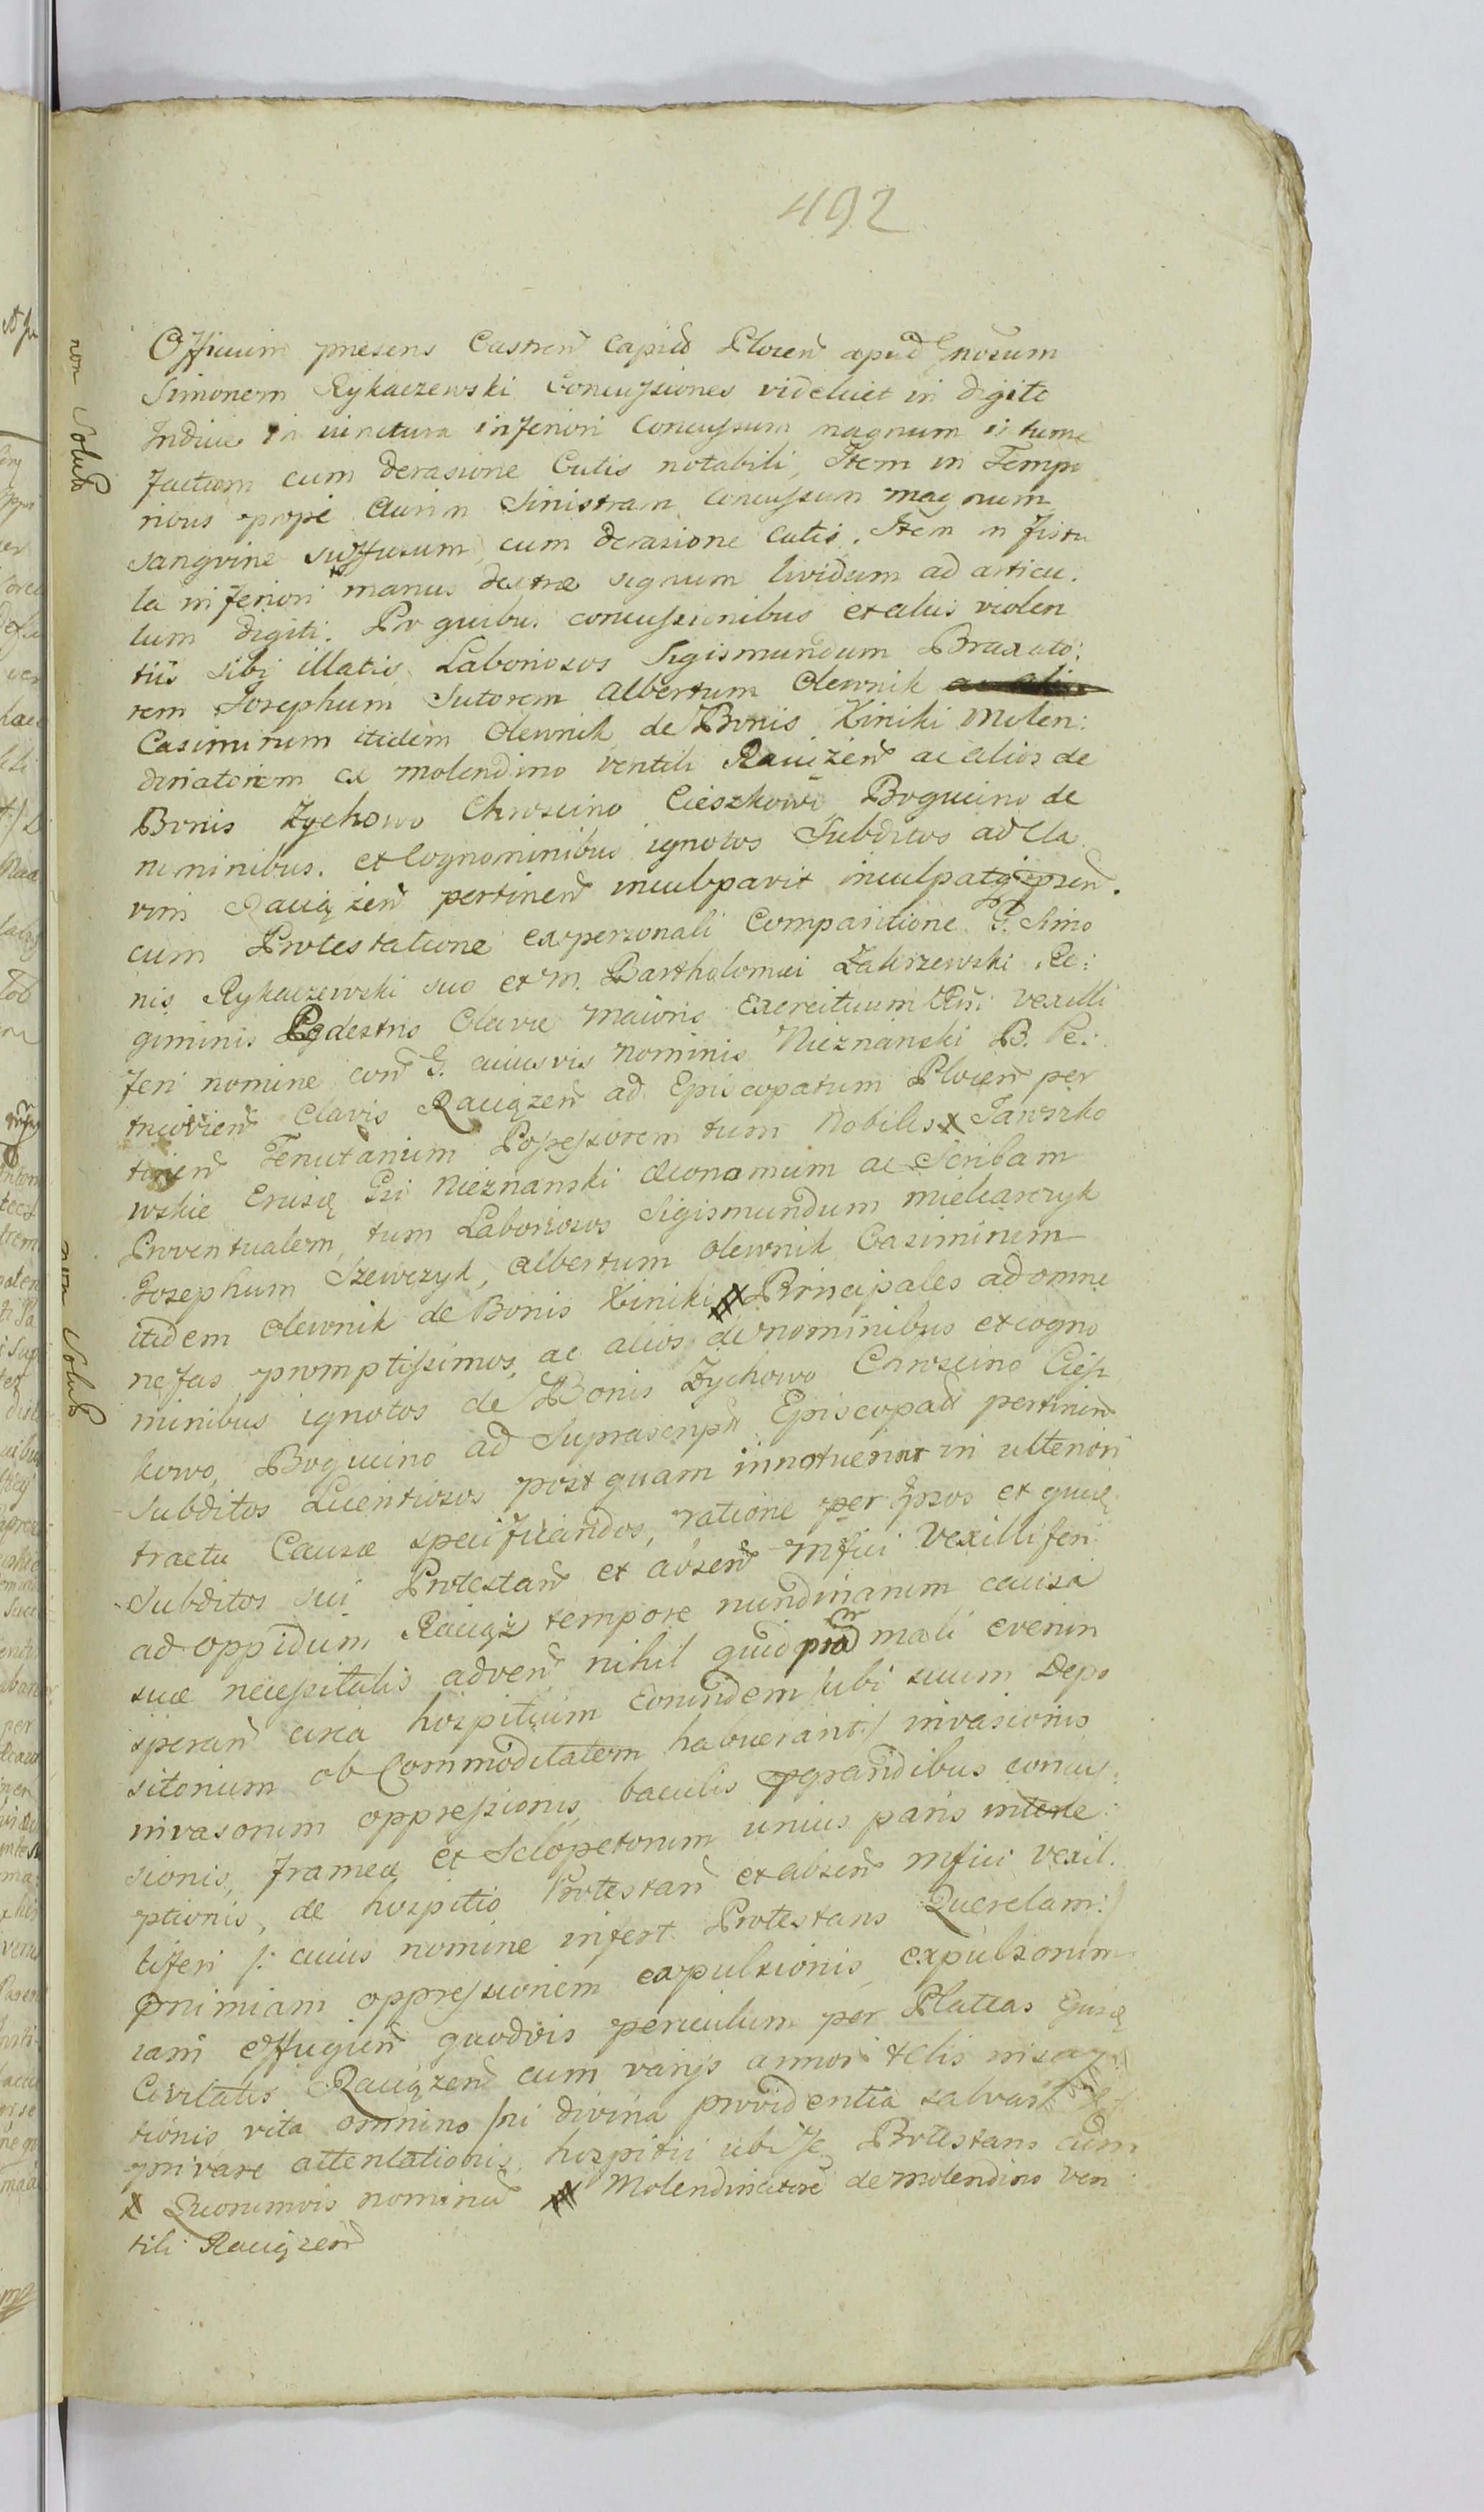 492
non Solut
Officium presens Castren Capit Plocen apud Gnosum
Simonem Rykaczewski Concussiones videlicet in digito
Indice in iunctura inferiori Concussum magnum is tume
factum cum derasione Cutis notabili, Item in Tempo
ribus prope Aurim Sinistram Concussum magnum
sangvine suffusum, cum derasione Cutis. Item in fistu
la inferiori manus dextrae signum lividum ad articu.
lum digiti. Pro quibus concussionibus et aliis violen
tiis sibi illatis Laboriosos Sigismundum Braxato:
rem Josephum Sutorem Albertum Olewnik
Casimirum itidem Olewnik de Bonis Kiniki Molen:
dinatorem ex molendino ventili Raciążen ac alios de
Bonis Zychowo Chroscino Cieszkowo Bogucino de
nominibus. et Cognominibus ignotos Subditos ad Cla
vim Raciążen pertinen inculpavit
cum Protestatione ex personali Comparitione G. Simo
nis Rykaczewski suo et M. Bartholomei Zakrzewski Re:
giminis Pedestris Clavae Maioris Exercituum Vexilli
feri nomine con G. cuiusvis nominis Nieznanski B. Pe:
tricovien Clavis Raciążen ad Episcopatum Plocen per
tinen Tenutarium Possessorem tum Nobiles x Jaroszko
wskie Gsi Nieznanski Oeconomum ac Scribam
Proventualem, tum Laboriosos Sigismundum Mielcarczyk
Josephum Szewczyk, Albertum Olewnik Casimirum
itidem Olewnik de Bonis Kiniki Principales ad omne
nefas promptissimos, ac alios de nominibus et cogno
minibus ignotos de Bonis Zychowo Chroscino Ciesz
kowo, Bogucino ad Suprascript Episcopat pertinen
non Solut
Subditos Licentiosos postquam innotuerint in ulteriori
tractu Causae specificandos, ratione per Ipsos et
Subditos sui Protestan et absen Mfici Vexilliferi
ad oppidum Raciąż tempore nundinarum causa
suae necessitatis adven nihil quid mali evenire
speran circa hospitium Eorundem /ubi suum Depo
sitorium ob Commoditatem habuerant:/ invasionis
invasorum oppressionis, baculis grandibus concus:
sionis, frameae et Sclopetorum unius paris interce:
ptionis, de hospitio Protestan et absen Mfici Vexil.
liferi /: cuius nomine infert Protestans Querelam:/
nimiam oppressionem expulsionis, expulsorum
iam effugien quodvis periculum per Plateas
Civitatis Raciążen cum varijs armor telis
tionis vita omnino /ni divina providentia salvasset
privare attentationis, hospitii ubi se Protestans cum
x Quorumvis nominu Molendinatore de molendino Ven
tili Raciążen